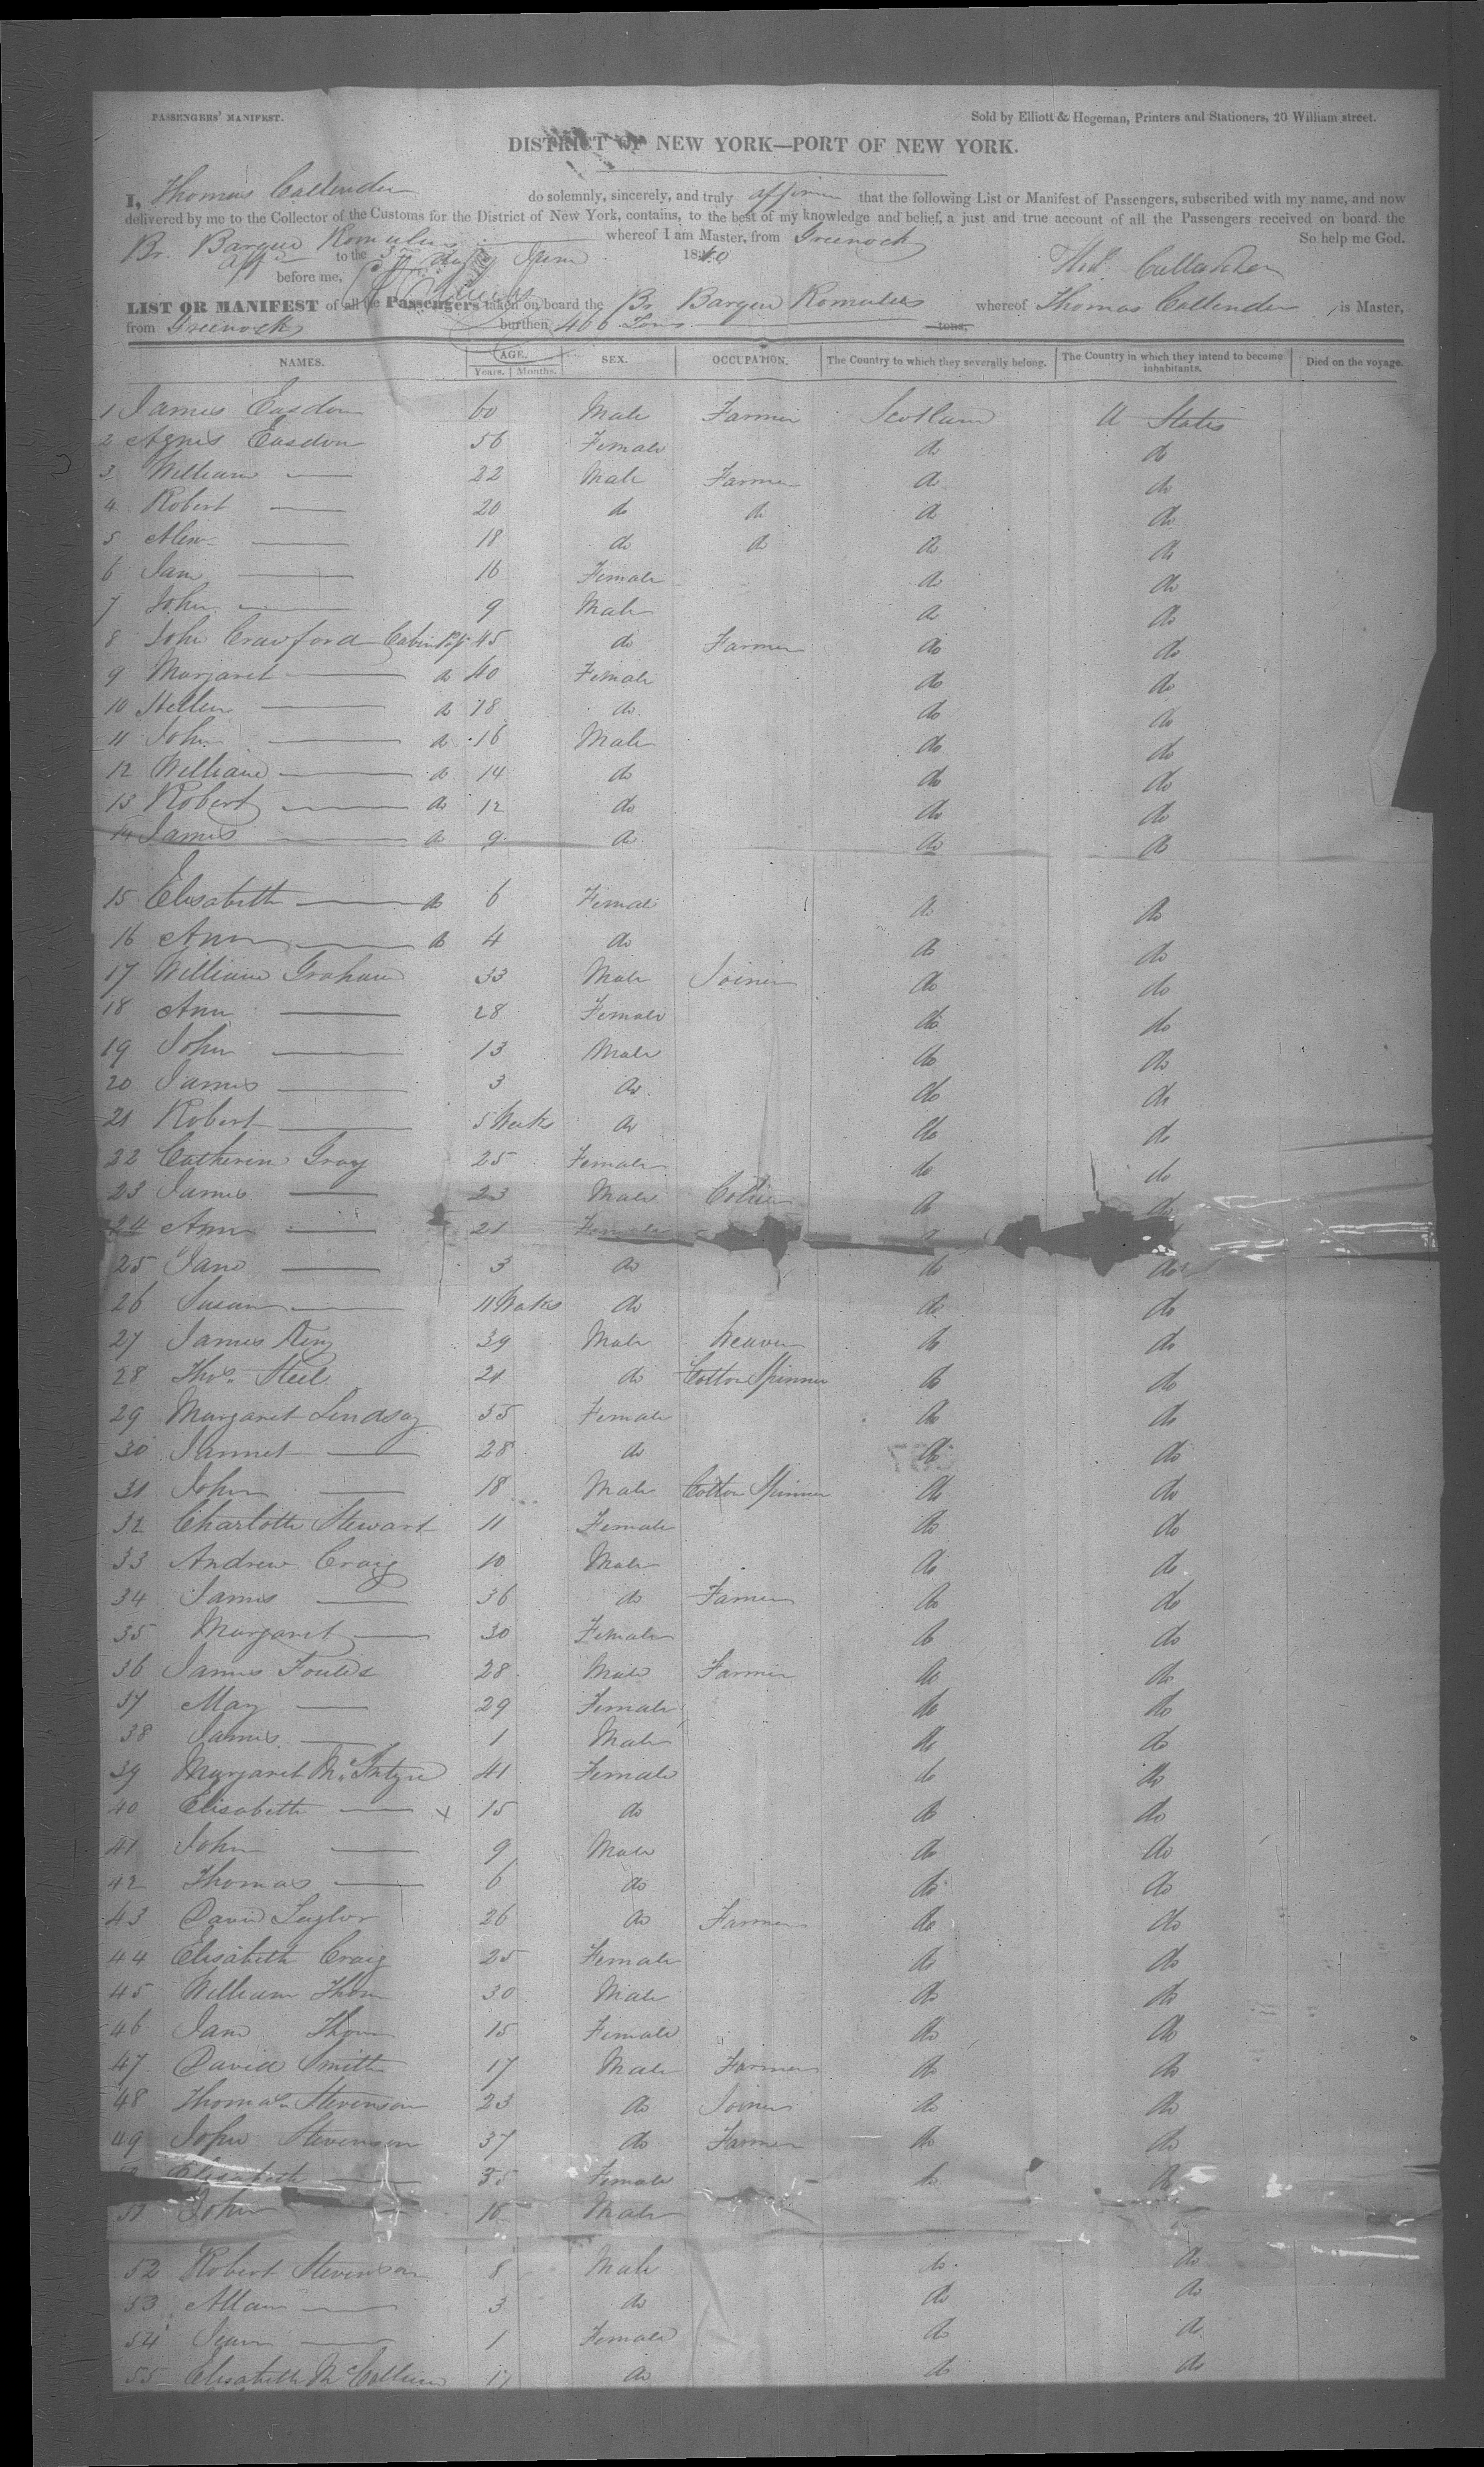 PASSENGERS' MANIFEST.
Sold by Elliott & Hegeman, Printers and Stationers, 20 William street.
DISTRICT OF NEW YORK—PORT OF NEW YORK.
I, Thomas Callender do solemnly, sincerely, and truly affirm that the following List or Manifest of Passengers, subscribed with my name, and now
delivered by me to the Collector of the Customs for the District of New York, contains, to the best of my knowledge and belief, a just and true account of all the Passengers received on board the
Br. Barque Romulus whereof I am Master, from Greenock So help me God.
to the 3 day June 1840
before me, Thos Callender
LIST OR MANIFEST of all the Passengers taken on board the Br Barque Romulus whereof Thomas Callender, is Master,
from Greenock burthen 466 Tons tons,
NAMES. AGE. Years. Months. SEX. OCCUPATION. The Country to which they severally belong. The Country in which they intend to become inhabitants. Died on the voyage.
1 James Easdon 60 Male Farmer Scotland U States
2 Agnes Easdon 56 Female do do
3 William — 22 Male Farmer do do
4 Robert — 20 do do do do
5 Alexr — 18 do do do do
6 Jane — 16 Female do do
7 John — 9 Male do do
8 John Crawford Cabin Psgr 45 do Farmer do do
9 Margaret — do 40 Female do do
10 Hellen — do 18 do do do
11 John — do 16 Male do do
12 William — do 14 do do do
13 Robert — do 12 do do do
14 James — do 9 do do do
15 Elisabeth — do 6 Female do do
16 Ann — do 4 do do do
17 William Graham 33 Male Joiner do do
18 Ann — 28 Female do do
19 John — 13 Male do do
20 James — 3 do do do
21 Robert — 5 Weeks do do do
22 Catherine Gray 25 Female do do
23 James — 23 Male Collier do do
24 Ann — 21 Female do
25 Jane — 3 do do do
26 Susan — 11 Weeks do do do
27 James King 39 Male Weaver do do
28 Thos. Steel 21 do Cotton Spinner do do
29 Margaret Lindsay 55 Female do do
30 Jannet — 28 do do do
31 John — 18 Male Cotton Spinner do do
32 Charlotte Stewart 11 Female do do
33 Andrew Craig 10 Male do do
34 James — 36 do Farmer do do
35 Margaret — 30 Female do do
36 James Foulds 28 Male Farmer do do
37 Mary — 29 Female do do
38 James — 1 Male do do
39 Margaret McIntyre 41 Female do do
40 Elisabeth — x 15 do do do
41 John — 9 Male do do
42 Thomas — 6 do do do
43 David Taylor 26 do Farmer do do
44 Elisabeth Craig 25 Female do do
45 William Thom 30 Male do do
46 Jane Thom 15 Female do do
47 David Smith 17 Male Farmer do do
48 Thomas Stevenson 23 do Joiner do do
49 John Stevenson 37 do Farmer do do
Elisabeth — 35 Female do do
51 John — 10 Male
52 Robert Stevenson 8 Male do do
53 Allan — 3 do do do
54 Jean — 1 Female do do
55 Elisabeth McCallum 17 do do do